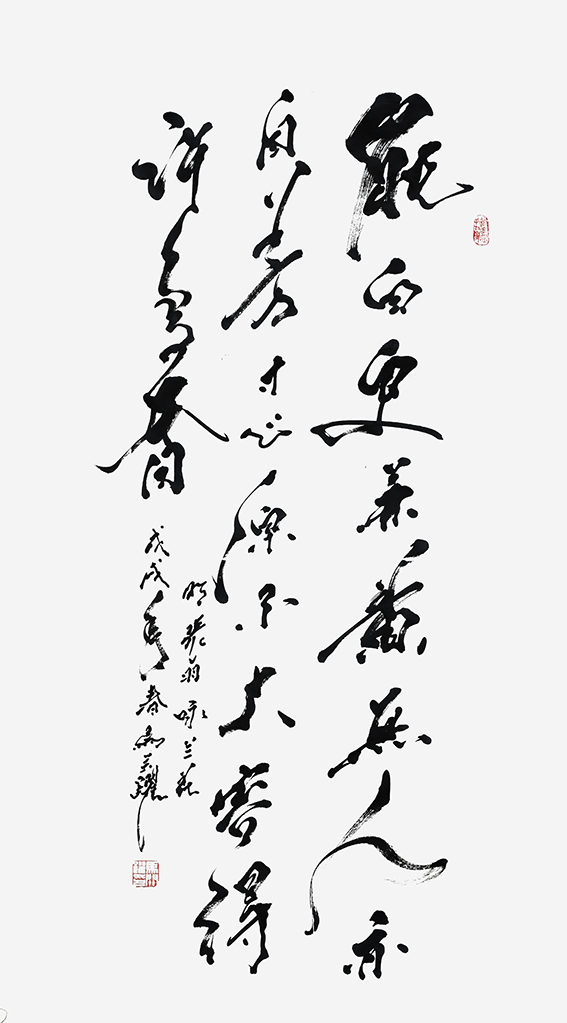 能白更兼黄無人亦
自芳寸心原不大容得
許多香
明張羽咏兰花
戊戌年春